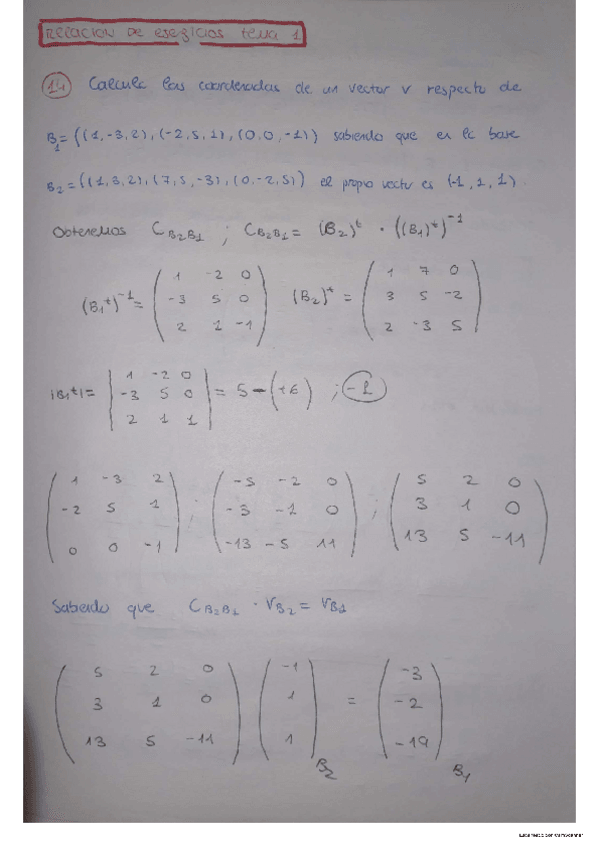 RELACION DE EJERCICIOS tema 1
14 Calcula las coordenadas de un vector v respecto de
B1 = ((1,-3,2), (-2,5,1), (0,0,-1)) sabiendo que en la base
B2 = ((1,3,2), (7,5,-3), (0,-2,5)) el propio vector es (-1,1,1)
Obtenemos C B2B1 ; C B2B1 = (B2)^t · ((B1)^t)^-1
(B1^t)^-1 = ( 1 -2 0 (B2)^t = ( 1 7 0
-3 5 0 3 5 -2
2 1 -1 ) 2 -3 5 )
|B1^t| = | 1 -2 0
-3 5 0 = 5 - (+6) ; -1
2 1 1 |
( 1 -3 2 ; ( -5 -2 0 ; ( 5 2 0
-2 5 1 -3 -1 0 3 1 0
0 0 -1 ) -13 -5 11 ) 13 5 -11 )
Sabiendo que C B2B1 · V B2 = V B1
( 5 2 0 ( -1 ( -3
3 1 0 1 = -2
13 5 -11 ) 1 ) B2 -19 ) B1